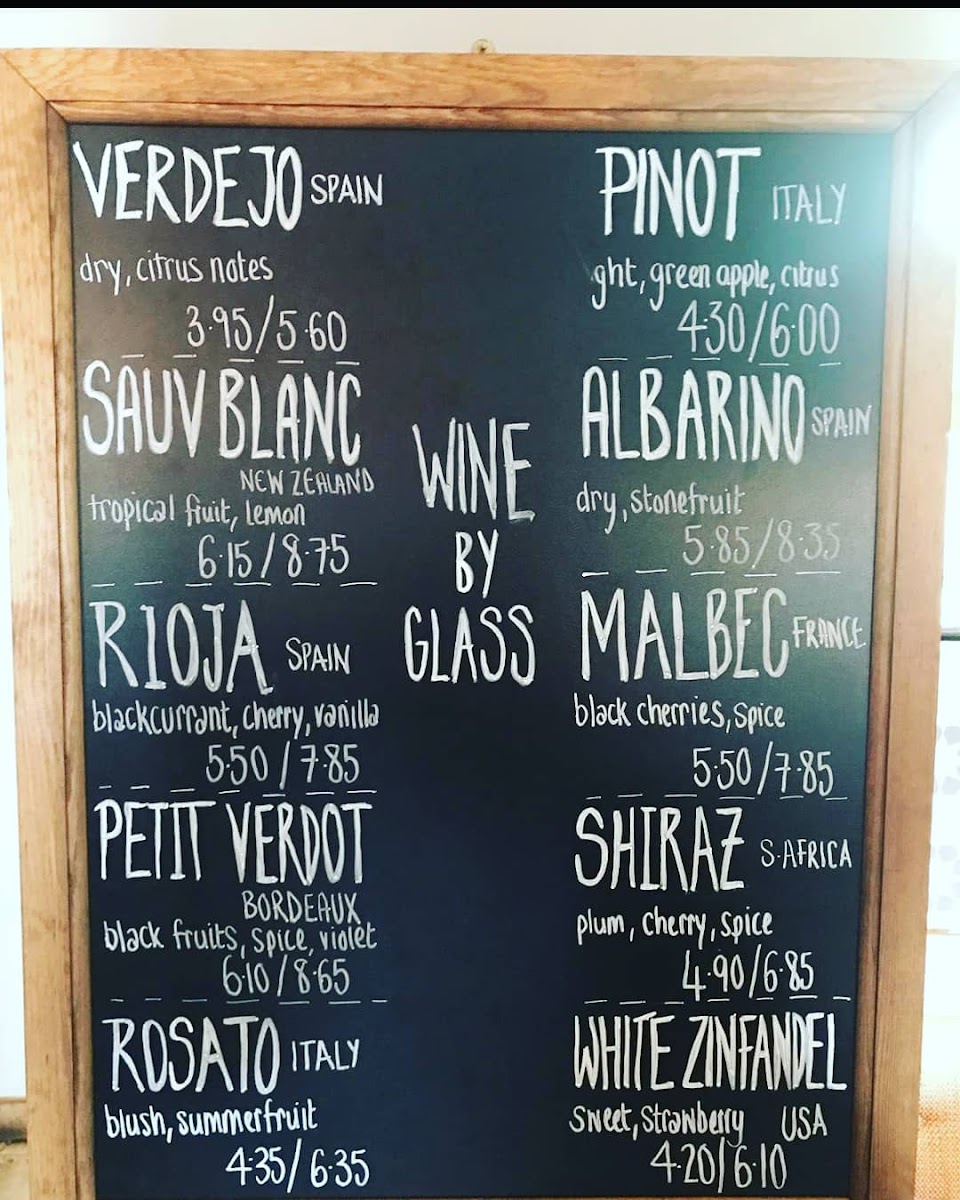 VERDEJO SPAIN
dry, citrus notes
3.95/5.60
SAUV BLANC
NEW ZEALAND
tropical fruit, lemon
6.15/8.75
RIOJA SPAIN
blackcurrant, cherry, vanilla
5.50/7.85
PETIT VERDOT
BORDEAUX
black fruits, spice, violet
6.10/8.65
ROSATO ITALY
blush, summerfruit
4.35/6.35
WINE
BY
GLASS
PINOT ITALY
ght, green apple, citrus
4.30/6.00
ALBARINO SPAIN
dry, stonefruit
5.85/8.35
MALBEC FRANCE
black cherries, spice
5.50/7.85
SHIRAZ S.AFRICA
plum, cherry, spice
4.90/6.85
WHITE ZINFANDEL
sweet, strawberry USA
4.20/6.10